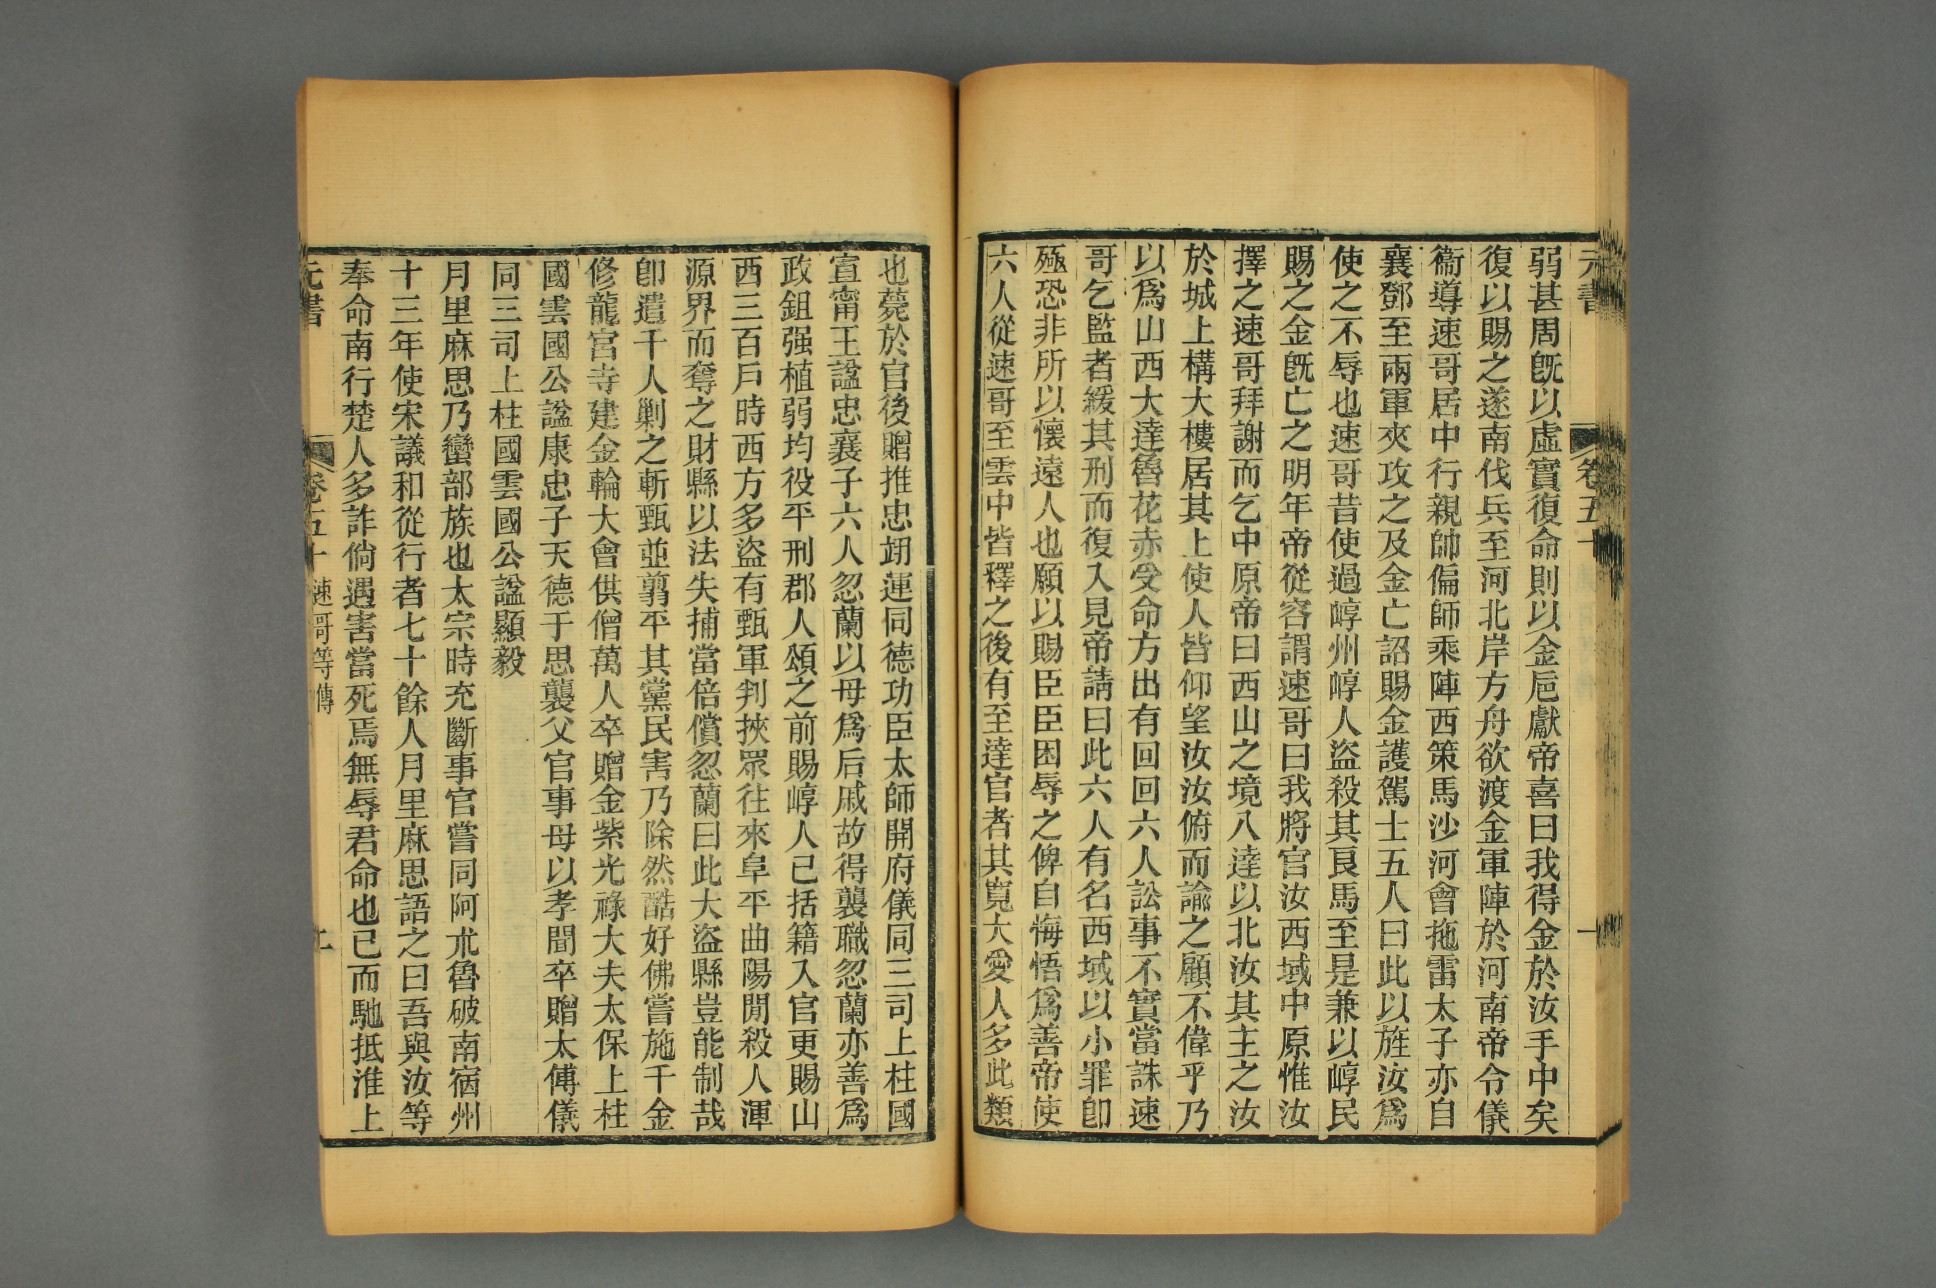 元書 卷五十 一
弱甚周旣以虛實復命則以金巵獻帝喜曰我得金於汝手中矣
復以賜之遂南伐兵至河北岸方舟欲渡金軍陣於河南帝令儀
衞導速哥居中行親帥偏師乘陣西策馬沙河會拖雷太子亦自
襄鄧至兩軍夾攻之及金亡詔賜金護駕士五人曰此以旌汝爲
使之不辱也速哥昔使過崞州崞人盜殺其良馬至是兼以崞民
賜之金旣亡之明年帝從容謂速哥曰我將官汝西域中原惟汝
擇之速哥拜謝而乞中原帝曰西山之境八達以北汝其主之汝
於城上構大樓居其上使人皆仰望汝汝俯而諭之顧不偉乎乃
以爲山西大達魯花赤受命方出有回回六人訟事不實當誅速
哥乞監者緩其刑而復入見帝請曰此六人有名西域以小罪卽
殛恐非所以懷遠人也願以賜臣臣困辱之俾自悔悟爲善帝使
六人從速哥至雲中皆釋之後有至達官者其寬大愛人多此類
也薨於官後贈推忠翊運同德功臣太師開府儀同三司上柱國
宣甯王諡忠襄子六人忽蘭以母爲后戚故得襲職忽蘭亦善爲
政鉏强植弱均役平刑郡人頌之前賜崞人已括籍入官更賜山
西三百戶時西方多盜有甄軍判挾眾往來阜平曲陽閒殺人渾
源界而奪之財縣以法失捕當倍償忽蘭曰此大盜縣豈能制哉
卽遣千人剿之斬甄並翦平其黨民害乃除然酷好佛嘗施千金
修龍宮寺建金輪大會供僧萬人卒贈金紫光祿大夫太保上柱
國雲國公諡康忠子天德于思襲父官事母以孝聞卒贈太傅儀
同三司上柱國雲國公諡顯毅
月里麻思乃蠻部族也太宗時充斷事官嘗同阿朮魯破南宿州
十三年使宋議和從行者七十餘人月里麻思語之曰吾與汝等
奉命南行楚人多詐倘遇害當死焉無辱君命也已而馳抵淮上
元書 卷五十 速哥等傳